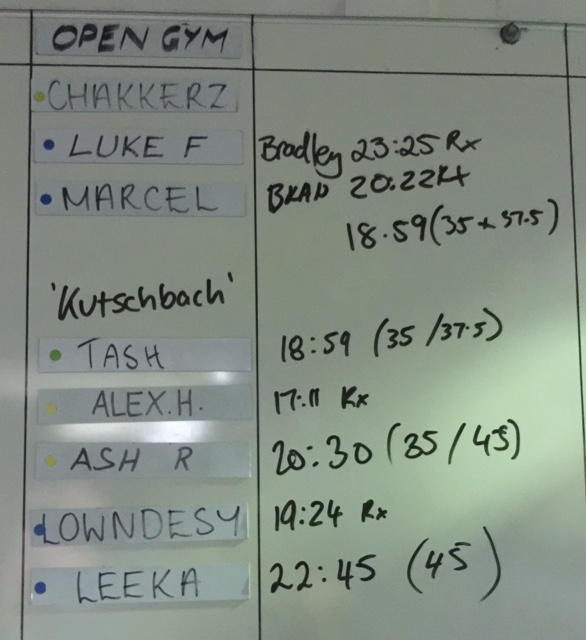 OPEN GYM
CHAKKERZ
LUKE F Bradley 23:25 Rx
MARCEL BRAD 20:22
18.59 (35 + 37.5)
'Kutschbach'
TASH 18:59 (35/37.5)
ALEX.H. 17:11 Rx
ASH R 20:30 (35/45)
LOWNDESY 19:24 Rx
LEEKA 22:45 (45)